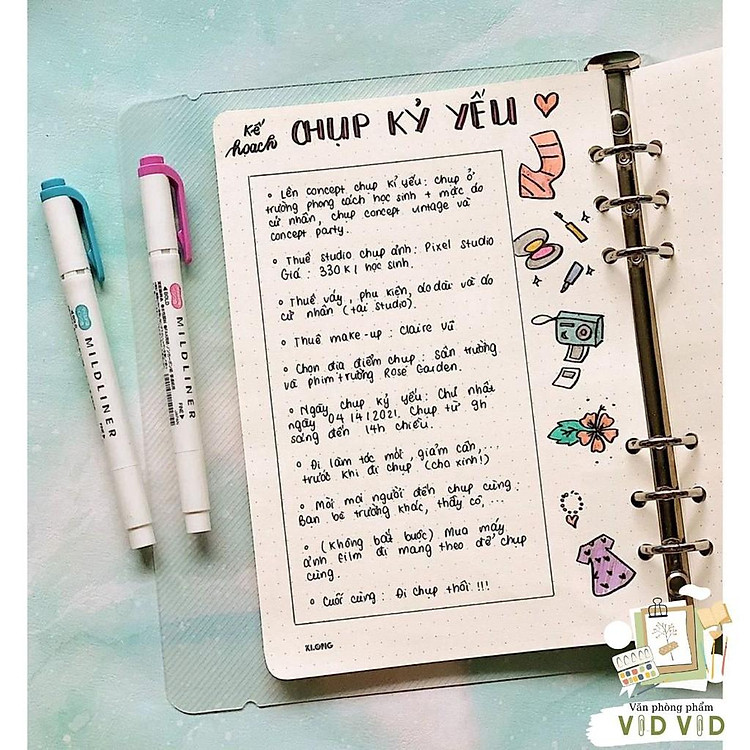 Kế hoạch
CHỤP KỶ YẾU
• Lên concept chụp kỉ yếu: chụp ở
trường phong cách học sinh + mặc áo
cử nhân, chụp concept vintage và
concept party.
• Thuê studio chụp ảnh: Pixel studio
Giá: 330K/ học sinh.
• Thuê váy, phụ kiện, áo dài và áo
cử nhân (tại studio).
• Thuê make-up: Claire Vũ
• Chọn địa điểm chụp: sân trường
và phim trường Rose Garden.
• Ngày chụp kỷ yếu: Chủ nhật
ngày 04/4/2021. Chụp từ 9h
sáng đến 14h chiều.
• Đi làm tóc mới, giảm cân,...
trước khi đi chụp (cho xinh!)
• Mời mọi người đến chụp cùng:
Bạn bè trường khác, thầy cô,...
• (Không bắt buộc) Mua máy
ảnh film đi mang theo để chụp
cùng.
• Cuối cùng: Đi chụp thôi!!!
KLONG
MILDLINER
MILDLINER
Văn phòng phẩm
VID VID